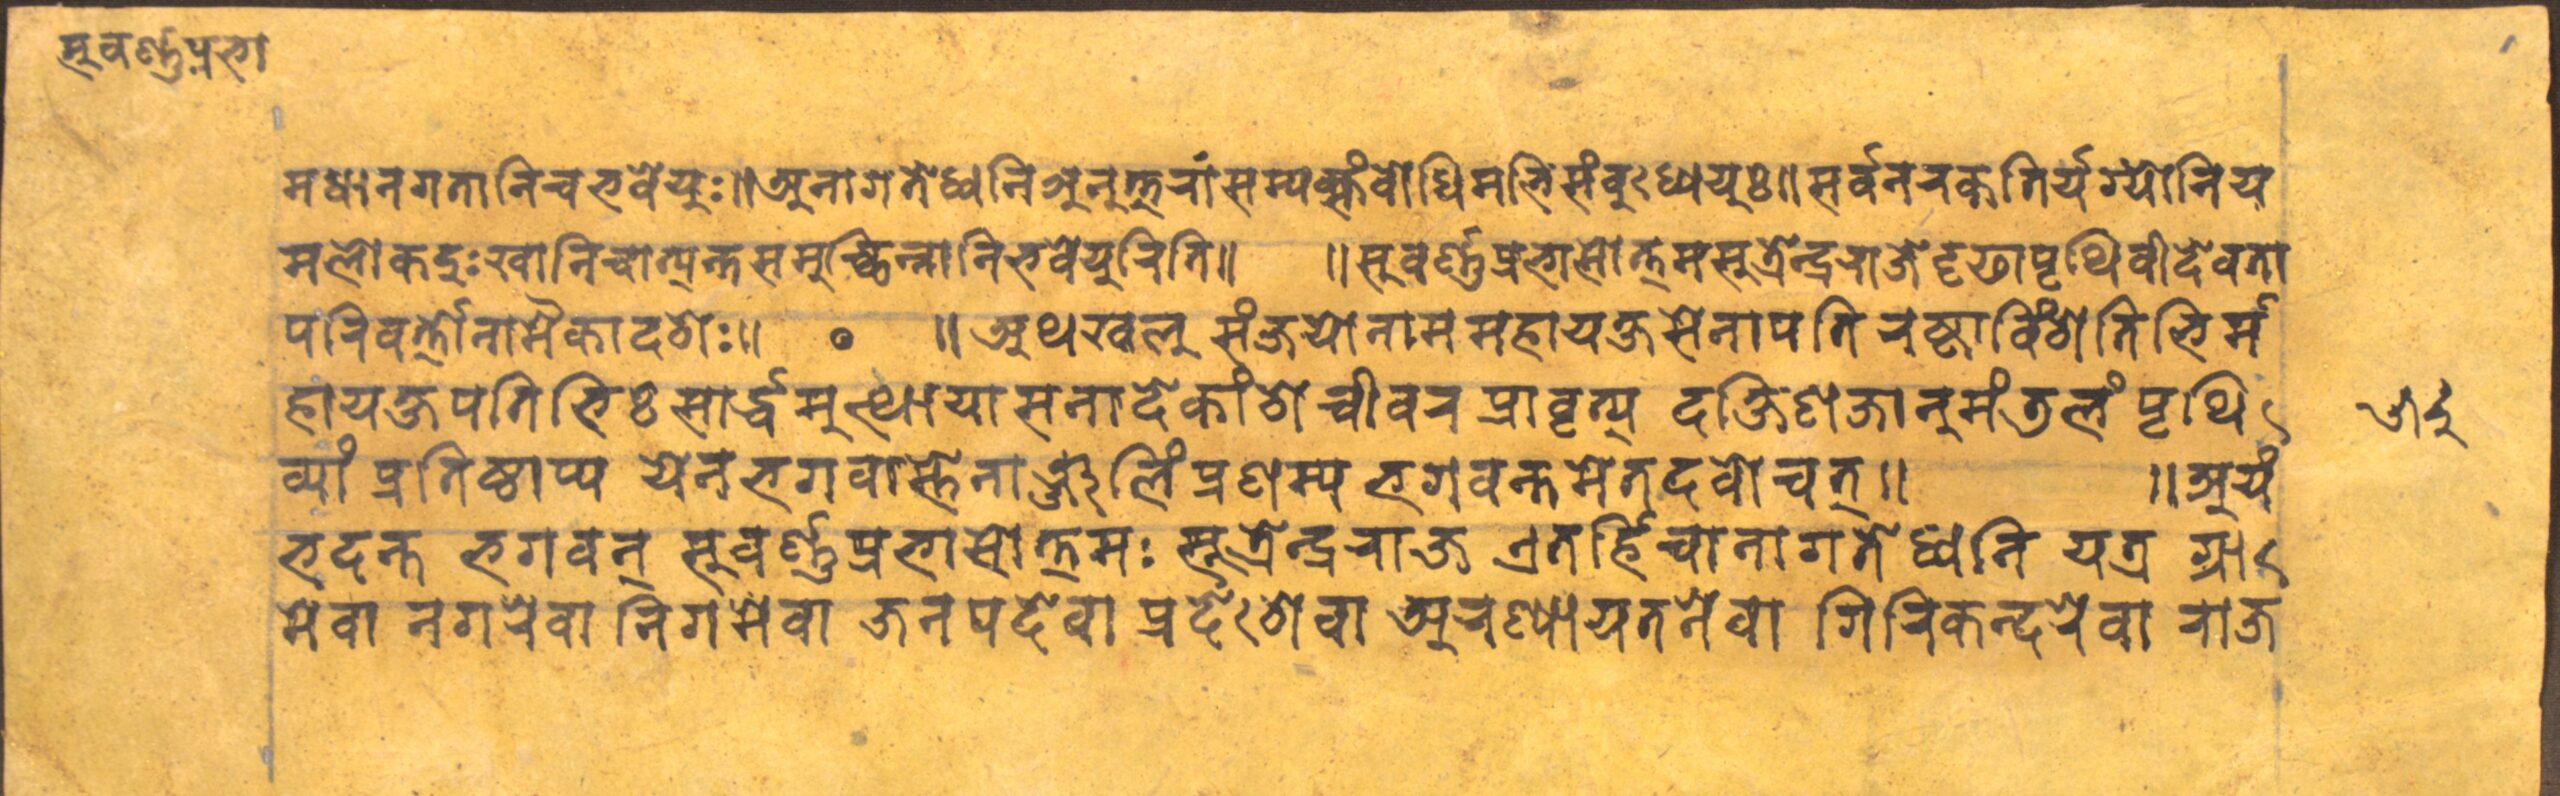 सुवर्ण्णप्रभा
मधानगतानि च भवेयुः॥ अनागतेध्वनि अनुत्तरां सम्यक्संबोधिमभिसंबुध्ययुः॥ सर्वनरकतिर्यग्योनिय
मलोकदुःखानि चात्यन्तसमुच्छिन्नानि भवेयुरिति॥ ॥ सुवर्ण्णप्रभासोत्तमसुत्रेन्द्रराजे दृढापृथिवीदेवता
परिवर्त्तो नामैकादशः॥ ० ॥ अथ खलु संजयो नाम महायक्षसेनापतिरष्टाविंशतिभिर्म
हायक्षपतिभिः सार्द्धमुत्थायासनादेकांशे चीवर प्रावृत्य दक्षिणजानुमंतलं पृथि
व्यां प्रतिष्ठाप्य येन भगवास्तेनाञ्जलिं प्रणम्य भगवन्तमेतदवोचत्॥ ॥ अयं
भदन्त भगवन् सुवर्ण्णप्रभासोत्तमः सूत्रेन्द्रराज एतर्हि चानागतेध्वनि यत्र ग्रा
मे वा नगरे वा निगमे वा जनपदे वा प्रदेशे वा अरण्यायतने वा गिरिकन्दरे वा राज